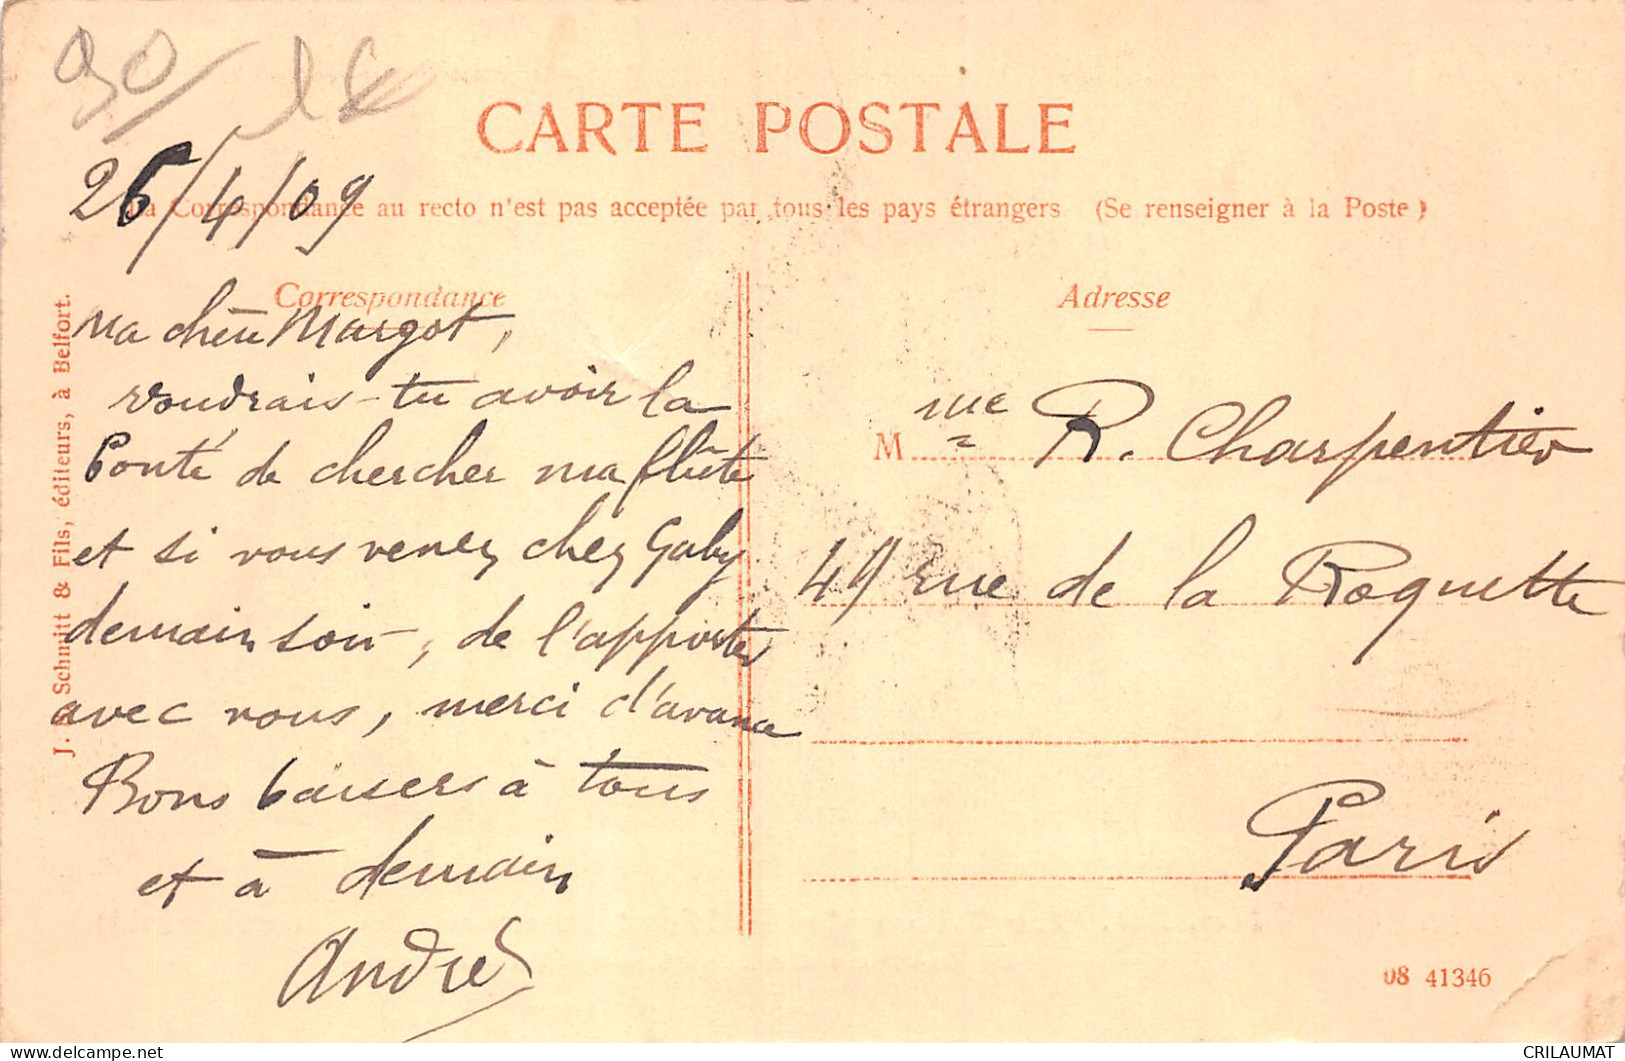 90/
26/4/09
CARTE POSTALE
La Correspondance au recto n'est pas acceptée par tous les pays étrangers (Se renseigner à la Poste)
Correspondance
Ma chère Margot,
voudrais-tu avoir la
bonté de chercher ma flûte
et si vous venez chez Gaby
demain soir, de l'apporter
avec vous, merci d'avance
Bons baisers à tous
et à demain
André
J. Schmitt & Fils, éditeurs, à Belfort.
Adresse
Mme R. Charpentier
49 rue de la Roquette
Paris
08 41346
CRILAUMAT